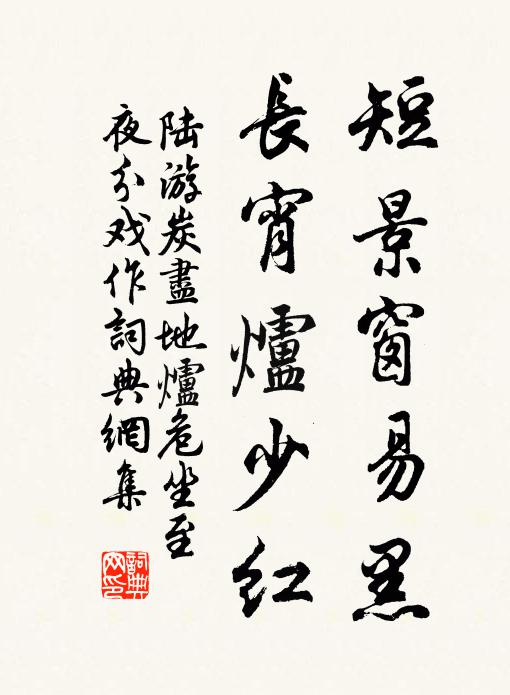 短景窗易黑
長宵爐少紅
陆游炭盡地爐危坐至
夜分戏作詞典網集
詞典
网印